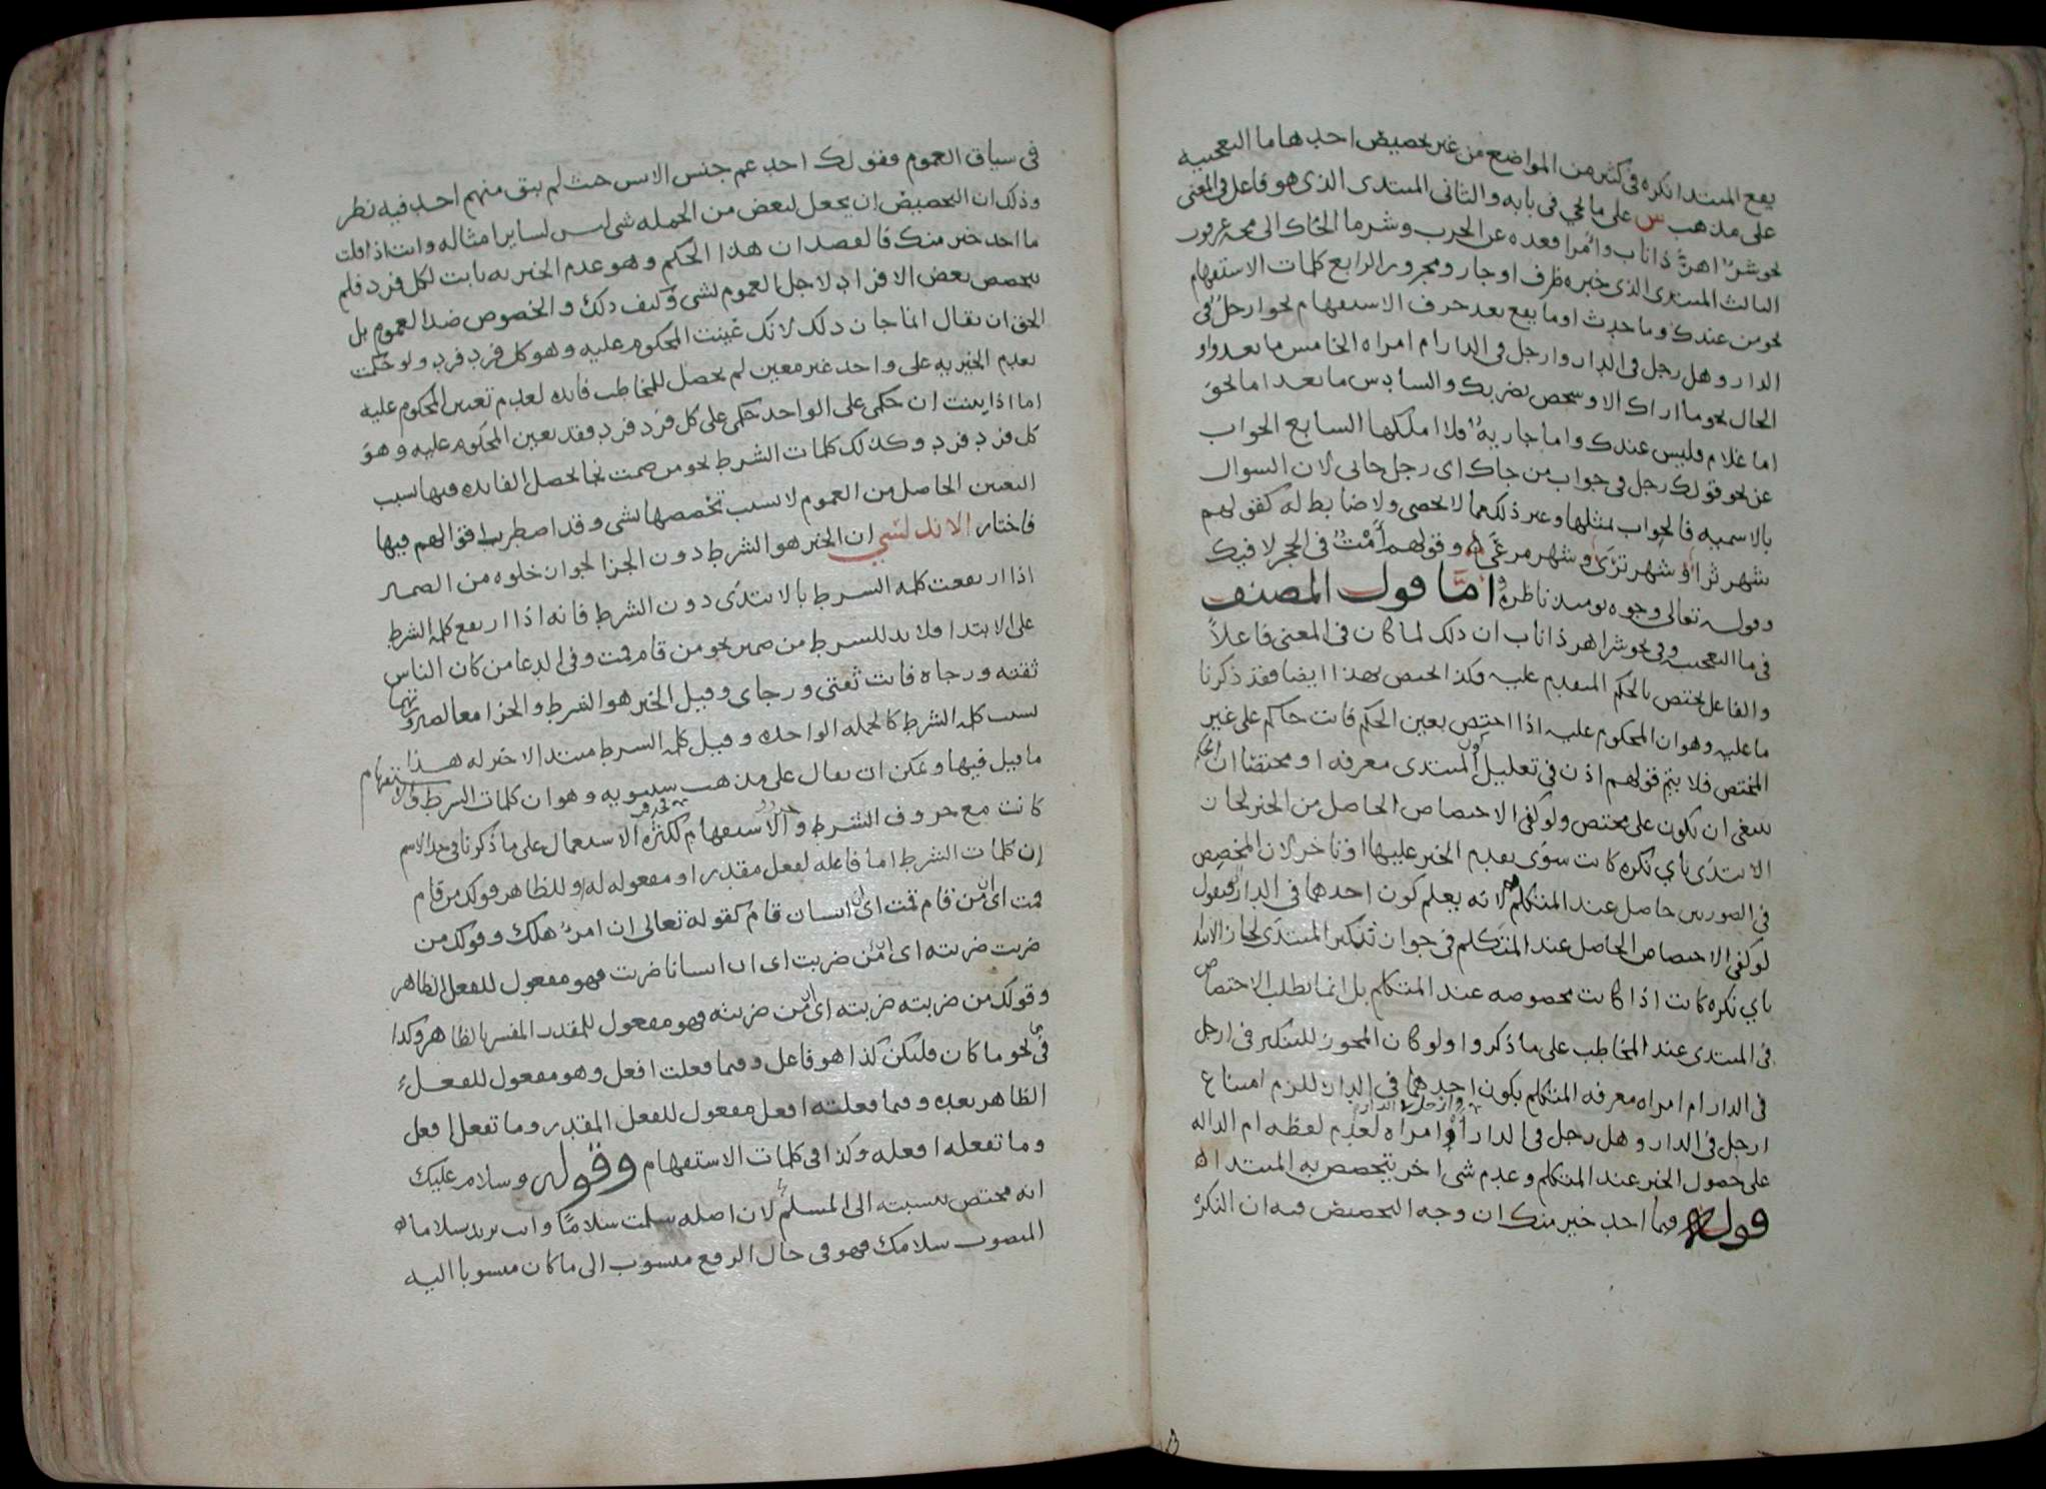 يقع المبتدا نكرة فى كثير من المواضع من غير تخصيص احدها ما التعجبية
على مذهب س على ما يجى فى بابه والثانى المبتدى الذى هو فاعل فى المعنى
نحو شر اهر ذا ناب وامرا قعده عن الحرب وشر ما الجاك الى مخه عرقوب
الثالث المبتدى الذى خبره ظرف او جار ومجرور الرابع كلمات الاستفهام
نحو من عندك وما حدث او ما يقع بعد حرف الاستفهام نحو ارجل فى
الدار وهل رجل فى الدار وارجل فى الدار ام امراه الخامس ما بعد واو
الحال نحو ما اراك الا وشخص يضربك والسادس ما بعد اما نحو
اما غلام فليس عندك واما جارية فلا املكها السابع الجواب
عن نحو قولك رجل فى جواب من جاك اى رجل جانى لان السوال
بالاسميه فالجواب بمثلها وغير ذلك مما لا يحصى ولا ضابط له كقولهم
شهر ثرا وشهر ترى وشهر مرعى وقولهم أمت فى الحجر لا فيك
وقوله تعالى وجوه يومئذ ناظرة اما قول المصنف
فى ما التعجب وفى نحو شر اهر ذا ناب ان ذلك لما كان فى المعنى فاعلا
والفاعل يختص بالحكم المتقدم عليه فكذا اختص هذا ايضا فقد ذكرنا
ما عليه وهو ان المحكوم عليه اذا اختص بعين الحكم فانت حاكم على غير
المختص فلا يتم قولهم اذن فى تعليل كون المبتدى معرفه او مختصا ان الحكم
ينبغى ان يكون على مختص ولو كفى الاختصاص الحاصل من الخبر لجاز
الابتدى باي نكره كانت سوى تقدم الخبر عليها او تاخر لان المخصص
فى الصورتين حاصل عند المتكلم لانه يعلم كون احدهما فى الدار فنقول
لو كفى الاختصاص الحاصل عند المتكلم فى جواز تنكير المبتدى لجاز الابتدا
باي نكره كانت اذا كانت مخصوصه عند المتكلم بل انما نطلب الاختصاص
فى المبتدى عند المخاطب على ما ذكروا ولو كان المجوز للتنكير فى ارجل
فى الدار ام امراه معرفه المتكلم بكون احدهما فى الدار للزم امتناع
ارجل فى الدار وهل رجل فى الدار او امراه لعدم لفظه ام الداله
على حصول الخبر عند المتكلم وعدم شى اخر يتخصص به المبتدا
قوله وما احد خير منك ان وجه التخصيص فيه ان النكره
فى سياق العموم فقولك احد عم جنس الانس حيث لم يبق منهم احد فيه نظر
وذلك ان التخصيص ان يجعل لبعض من الجمله شى ليس لساير امثاله وانت اذا قلت
ما احد خير منك فالقصد ان هذا الحكم وهو عدم الخيريه ثابت لكل فرد فلم
يتخصص بعض الافراد لاجل العموم لشى وكيف ذلك والخصوص ضد العموم بل
الحق ان يقال انما جاز ذلك لانك عينت المحكوم عليه وهو كل فرد فرد ولو حكمت
بعدم الخيريه على واحد غير معين لم يحصل للمخاطب فايده لعدم تعين المحكوم عليه
اما اذا بينت ان حكمى على الواحد حكمى على كل فرد فرد فقد تعين المحكوم عليه وهو
كل فرد فرد وكذلك كلمات الشرط نحو من صمت نجا تحصل الفايده فيها بسبب
التعيين الحاصل من العموم لا بسبب تخصصها بشى وقد اضطرب اقوالهم فيها
فاختار الاندلسي ان الخبر هو الشرط دون الجزا لجواز خلوه من الضمير
اذا ارتفعت كلمه الشرط بالابتدى دون الشرط فانه اذا ارتفع كلمه الشرط
على الابتدا فلا بد للشرط من ضمير نحو من قام قمت وفى الدعا من كان الناس
ثقته ورجاه فانت ثقتى ورجاى وقيل الخبر هو الشرط والجزا معا لصيرورتهما
بسبب كلمه الشرط كالجمله الواحده وقيل كلمه الشرط مبتدا لا خبر له هذا
ما قيل فيها ويمكن ان يقال على مذهب سيبويه وهو ان كلمات الشرط والاستفهام
كانت مع حروف الشرط والاستفهام لكثره الاستعمال على ما ذكرنا فى حد الاسم
ان كلمات الشرط اما فاعله لفعل مقدر او مفعوله له او للظاهر فقولك من قام
قمت اى ان من قام قمت اى ان انسان قام كقوله تعالى ان امرؤ هلك وقولك من
ضربت ضربته اى ان من ضربت اى ان انسانا ضربت فهو مفعول للفعل الظاهر
وقولك من ضربته ضربته اى ان من ضربته فهو مفعول للمقدر المفسر بالظاهر وكذا
فى نحو ما كان فليكن كذا هو فاعل وفيما فعلت افعل وهو مفعول للفعل
الظاهر بعده وفيما فعلته افعل مفعول للفعل المقدر وما تفعل افعل
وما تفعله افعله وكذا فى كلمات الاستفهام وقوله وسلام عليك
انه مختص بنسبته الى المسلم لان اصله سلمت سلاما وانت تريد سلاما
المنصوب سلامك فهو فى حال الرفع منسوب الى ما كان منسوبا اليه